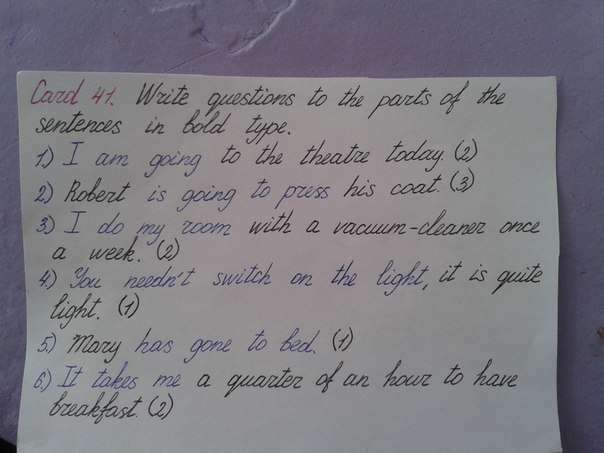 Card 41. Write questions to the parts of the
sentences in bold type.
1) I am going to the theatre today. (2)
2) Robert is going to press his coat. (3)
3) I do my room with a vacuum-cleaner once
a week. (2)
4) You needn't switch on the light, it is quite
light. (1)
5) Mary has gone to bed. (1)
6) It takes me a quarter of an hour to have
breakfast. (2)